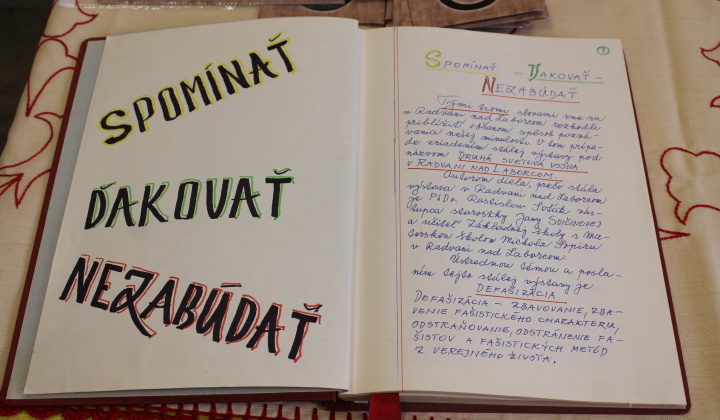 SPOMÍNAŤ
ĎAKOVAŤ
NEZABÚDAŤ
1
SPOMÍNAŤ – ĎAKOVAŤ –
NEZABÚDAŤ
Tými tromi slovami sme sa
v Radvani nad Laborcom rozhodli
priblížiť občanom spôsob pozná-
vania našej minulosti v tom prípa-
de zriadením stálej výstavy pod
názvom DRUHÁ SVETOVÁ VOJNA
V RADVANI NAD LABORCOM.
Autorom diela, prečo stála
výstava v Radvani nad Laborcom
je PhDr. Rastislav Soták nás-
tupca starostky Jany SVIČINOVEJ
a učiteľ Základnej školy s Ma-
terskou školou Michala Sopiru
v Radvani nad Laborcom.
Ústrednou témou a posla-
ním tejto stálej výstavy je
DEFAŠIZÁCIA
DEFAŠIZÁCIA – ZBAVOVANIE, ZBA-
VENIE FAŠISTICKÉHO CHARAKTERU,
ODSTRAŇOVANIE, ODSTRÁNENIE FA-
ŠISTOV A FAŠISTICKÝCH METÓD
Z VEREJNÉHO ŽIVOTA.